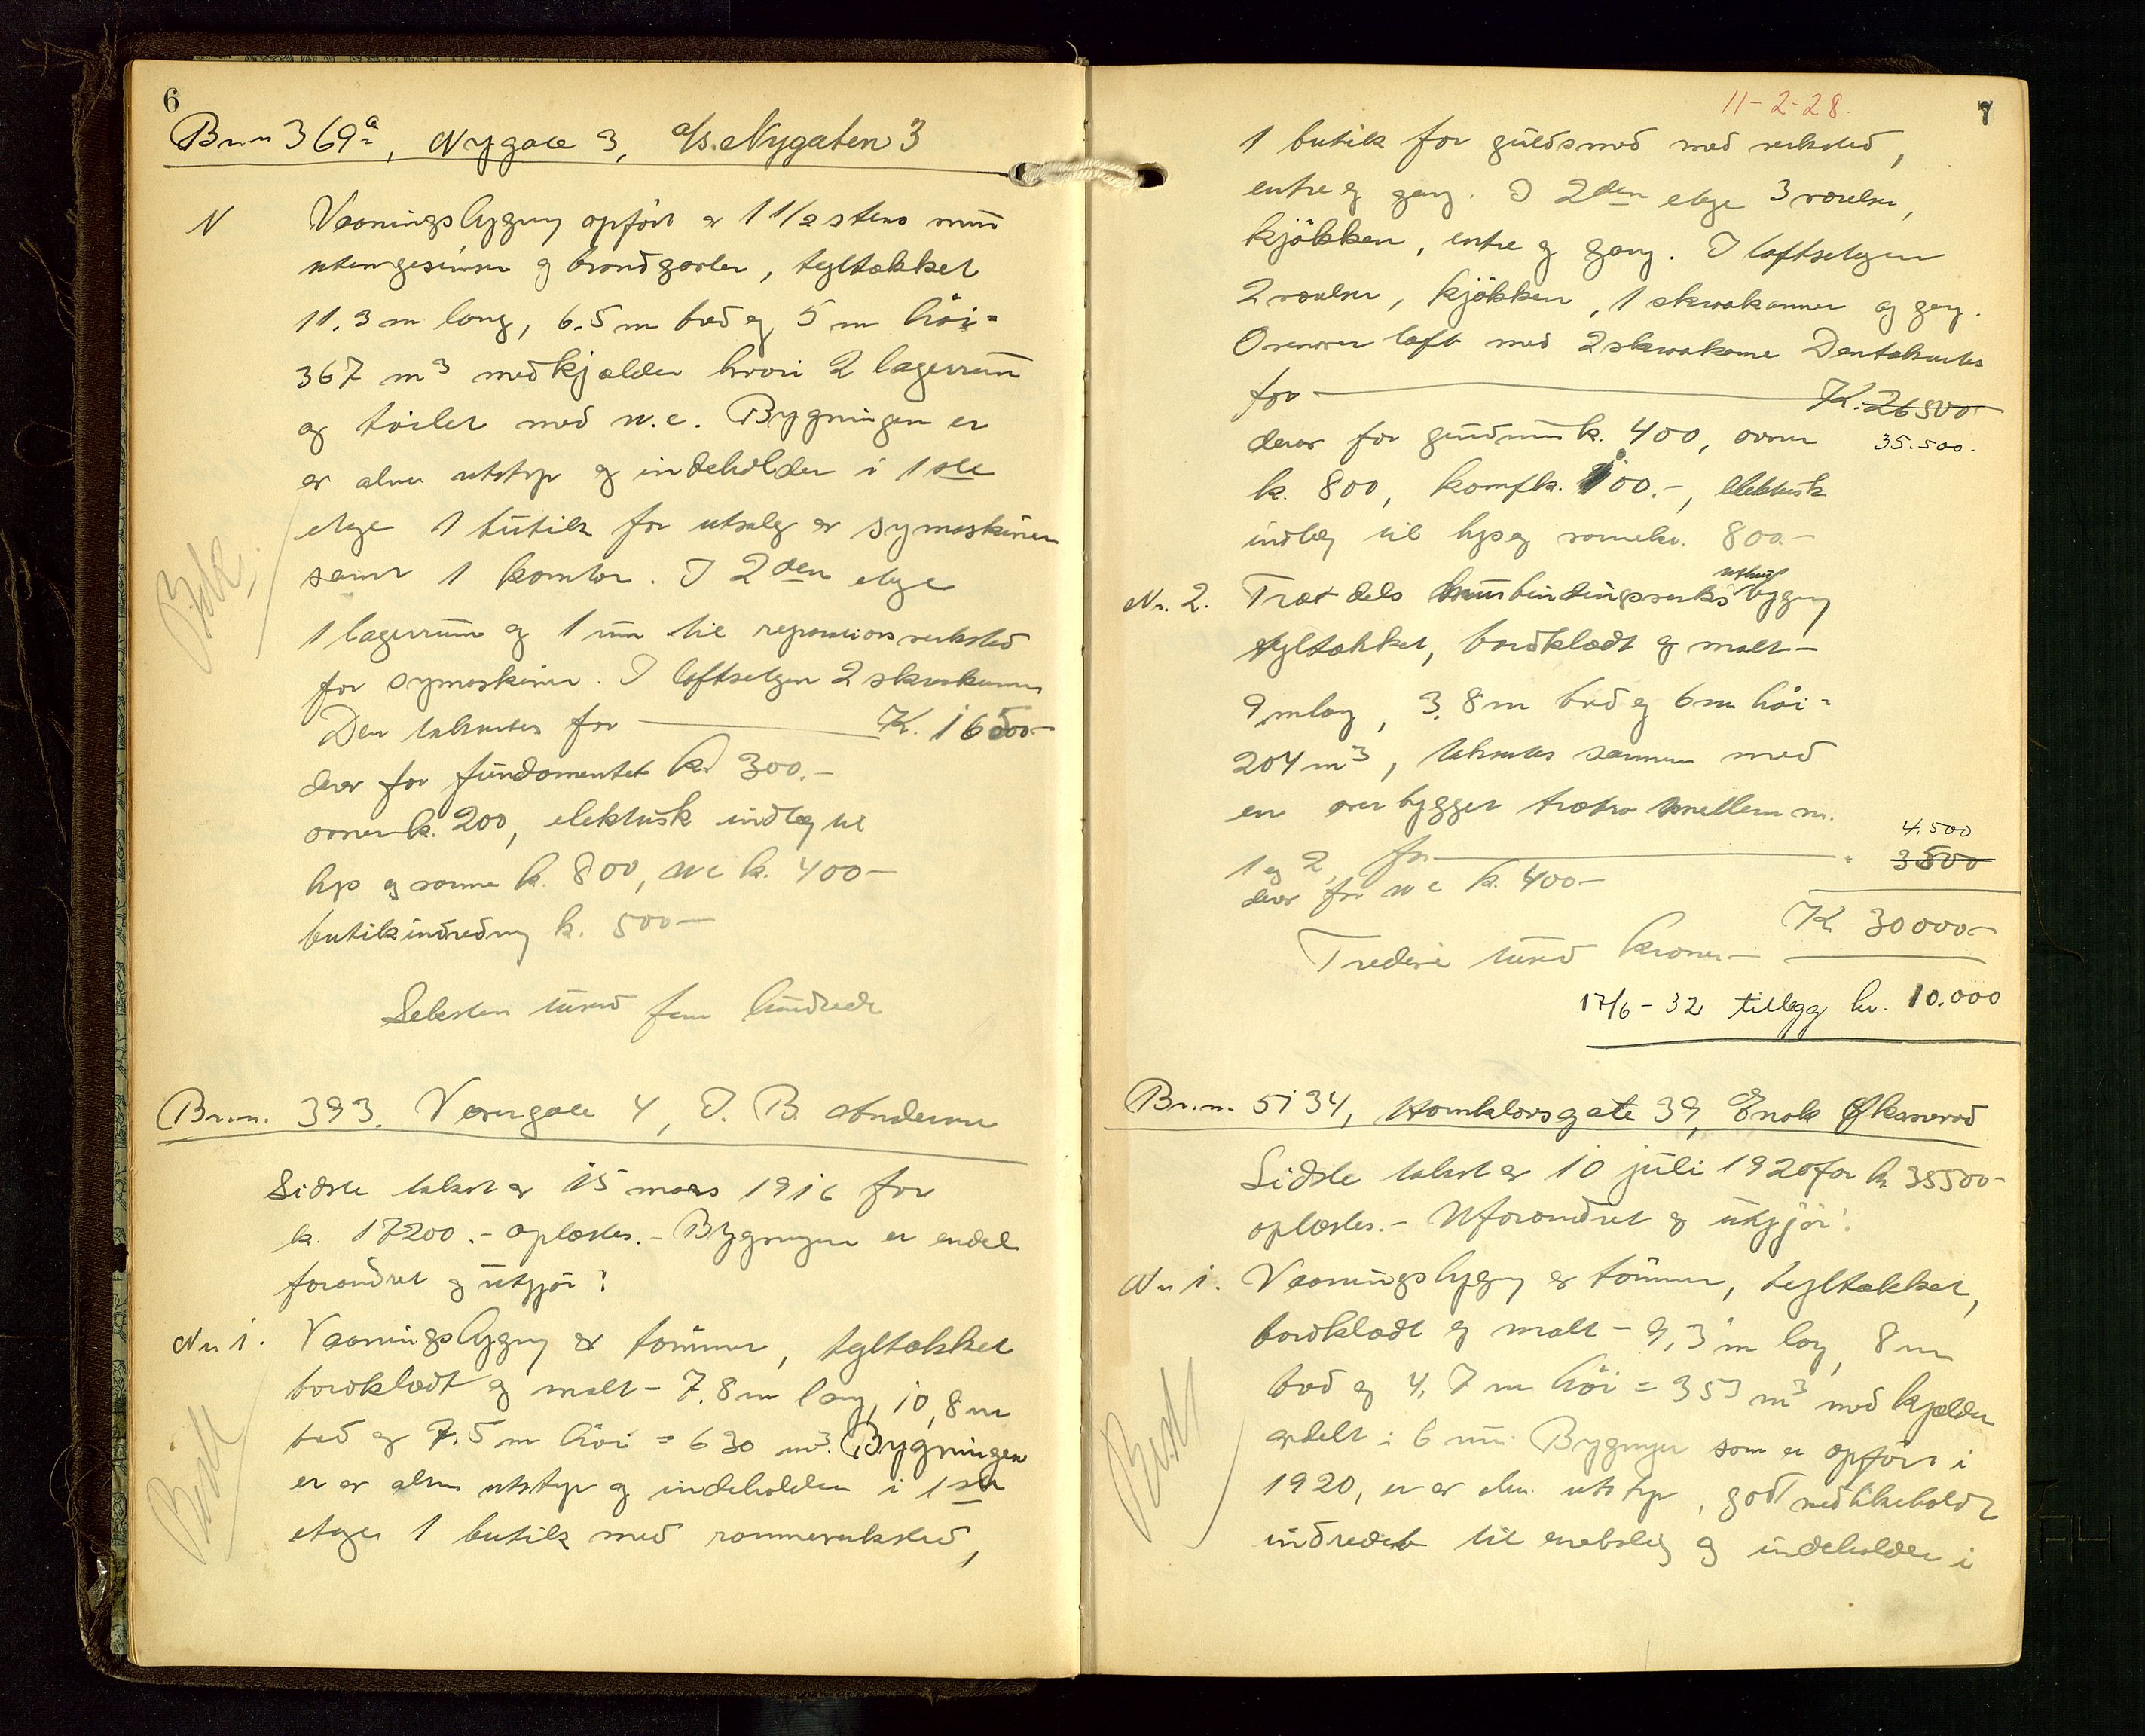 6
Br.nr 369a, Nygate 3, a/s. Nygaten 3
N Vaaningsbygning opført av 1 1/2 stens mur
uten gesimser og brandgavler, tegltækket
11.3 m lang, 6.5 m bred og 5 m høi =
367 m3 med kjælder hvori 2 lagerrum
og toilet med w.c. Bygningen er
av alm utstyr og indeholder i 1ste
etage 1 butik for utsalg av symaskiner
samt 1 kontor. I 2den etage
1 lagerrum og 1 rum til reparationsverksted
for symaskiner. I loftsetagen 2 skraakamre
Den takseres for K. 16500-
derav for fundamentet kr 300.-
ovner k. 200, elektrisk indlæg til
lys og varme k. 800, wc k. 400-
butikindredning k. 500-
Seksten tusind fem hundrede
Br.nr. 393. Vævergate 4, J. B. Andersen
Sidste takst av 15 mars 1916 for
k. 17200.- oplæstes.- Bygningen er endel
forandret og utgjør:
Nr 1. Vaaningsbygning av tømmer, tegltækket
bordklædt og malt - 7.8 m lang, 10,8 m
bred og 7.5 m høi = 630 m3. Bygningen
er av alm utstyr og indeholder i 1ste
etage 1 butik med verksted,
11-2-28.
7
1 butik for guldsmed med verksted,
entre og gang. I 2den etage 3 værelser,
kjøkken, entre og gang. I loftsetagen
2 værelser, kjøkken, 1 skraakammer og gang.
Ovenover loft med 2 skraakamre Den takseres
for K. 26500-
35.500.
derav for grundmur k. 400, ovner
k. 800, komf k. 100.-, elektrisk
indlæg til lys og varme kr. 800.-
Nr. 2. Træ dels murbindingsverks uthusbygning
tegltækket, bordklædt og malt -
9 m lang, 3.8 m bred og 6 m høi =
204 m3, takseres sammen med
en overbygget trætro mellem nr.
4.500
1 og 2, for " 3500
derav for wc k. 400-
K 30000-
Tredive tusind kroner-
17/6-32 tillegg kr. 10.000
Br.nr. 5134, Hornklovsgate 39, Enok
Sidste takst av 10 juli 1920 for k 35500-
oplæstes.- Uforandret og utgjør:
Nr 1. Vaaningsbygning av tømmer, tegltækket,
bordklædt og malt - 9,3 m lang, 8 m
bred og 4,7 m høi = 353 m3 med kjælder
avdelt i 6 rum. Bygningen som er opført i
1920, er av alm. utstyr, godt vedlikeholdt
indredet til enebolig og indeholder i